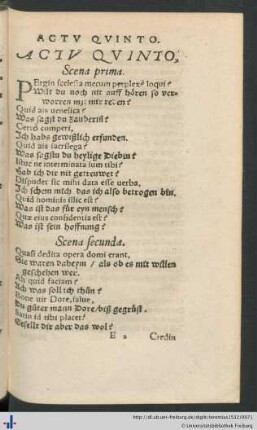 ACTV QVINTO.
ACTV QVINTO,
Scena prima.
PErgin scelesta mecum perplexe loqui?
Wilt du noch nit auff hören so ver-
worren mit mir reden?
Quid ais venefica?
Was sagst du zauberin?
Certo comperi,
Ich habs gewißlich erfunden.
Quid ais sacrilega?
Was sagstu du heylige Diebin?
Istuc ne interminata sum tibi?
Hab ich dir nit getrawet?
sic mihi data esse verba,
Ich schem mich das ich also betrogen bin.
Quid hominis illic est?
Was ist das für eyn mensch?
Quæ eius confidentia est?
Was ist sein hoffnung?
Scena secunda.
Quasi dedita opera domi erant,
Sie waren daheym / als ob es mit willen
geschehen wer.
quid faciam?
Ich was soll ich thün?
Bone vir Dore, salue,
Du güter mann Dore/biß gegrüst.
id tibi placet?
Gefellt dir aber das wol?
E 2 Credin
http://dl.ub.uni-freiburg.de/diglit/terentius1532/0071
© Universitätsbibliothek Freiburg